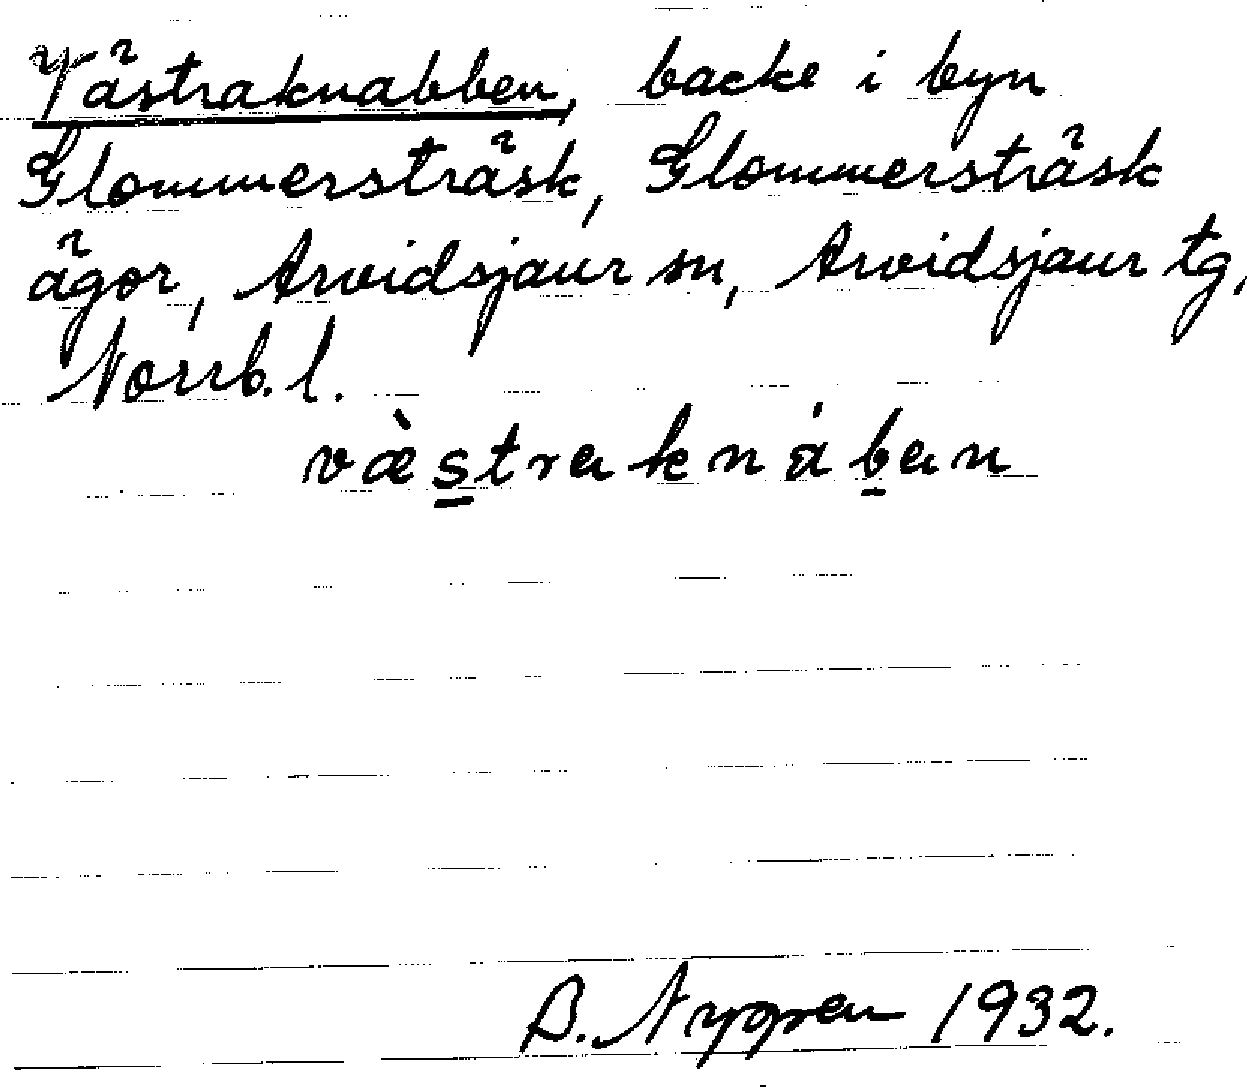 Västraknabben, backe i byn
Glommersträsk, Glommersträsk
ägor, Arvidsjaur sn, Arvidsjaur tg,
Norrb. l.
væ̀s̲traknáb̲an
B. Nygren 1932.